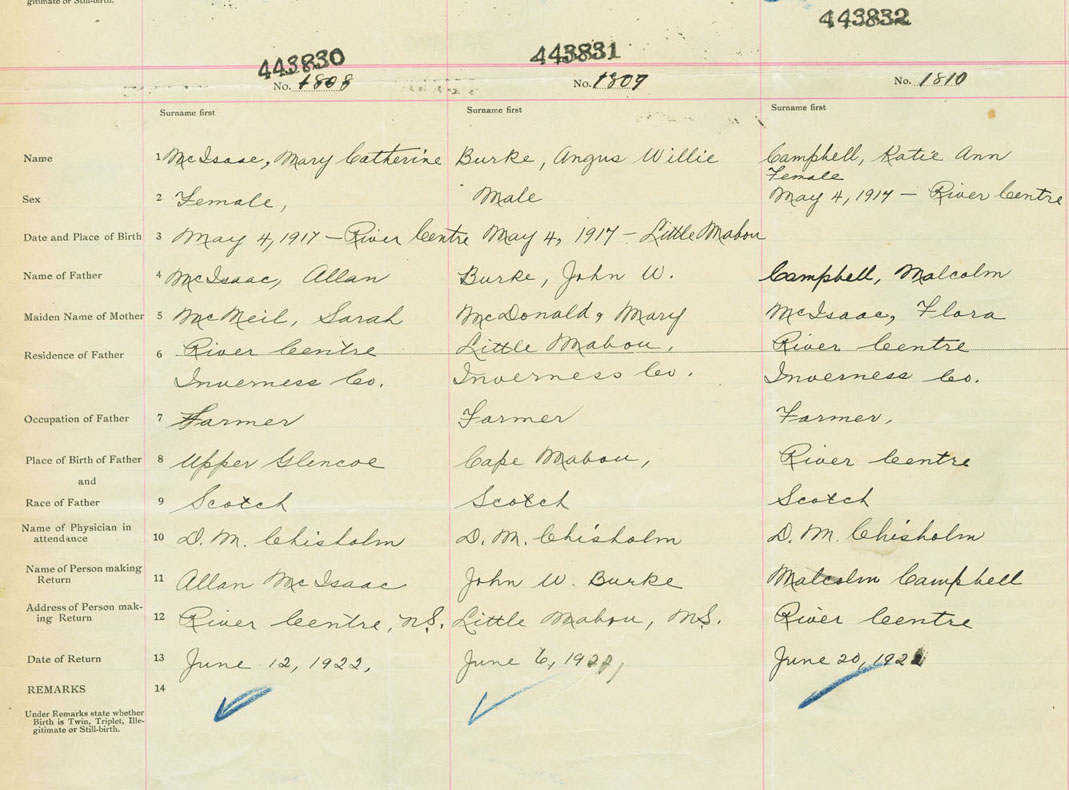 gitimate or Still-birth.
443830 443831 443832
No. 1808 No. 1809 No. 1810
Surname first Surname first Surname first
Name 1 McIsaac, Mary Catherine Burke, Angus Willie Campbell, Katie Ann
Female
Sex 2 Female, Male May 4, 1917 - River Centre
Date and Place of Birth 3 May 4, 1917 - River Centre May 4, 1917 - Little Mabou
Name of Father 4 McIsaac, Allan Burke, John W. Campbell, Malcolm
Maiden Name of Mother 5 McNeil, Sarah McDonald, Mary McIsaac, Flora
Residence of Father 6 River Centre Little Mabou, River Centre
Inverness Co. Inverness Co. Inverness Co.
Occupation of Father 7 Farmer Farmer Farmer,
Place of Birth of Father 8 Upper Glencoe Cape Mabou, River Centre
and
Race of Father 9 Scotch Scotch Scotch
Name of Physician in
attendance 10 D. M. Chisholm D. M. Chisholm D. M. Chisholm
Name of Person making
Return 11 Allan McIsaac John W. Burke Malcolm Campbell
Address of Person mak-
ing Return 12 River Centre, N.S. Little Mabou, N.S. River Centre
Date of Return 13 June 12, 1922, June 6, June 20,
REMARKS 14
Under Remarks state whether
Birth is Twin, Triplet, Ille-
gitimate or Still-birth.